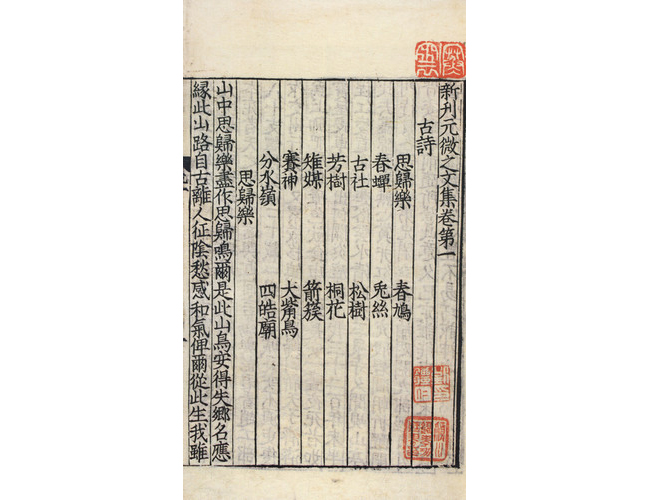 新刊元微之文集卷第一
古詩
思歸樂 春鳩
春蟬 兎絲
古社 松樹
芳樹 桐花
雉媒 箭簇
賽神 大觜烏
分水嶺 四皓廟
思歸樂
山中思歸樂盡作思歸鳴爾是此山鳥安得失鄉名應
緣此山路自古離人征陰愁感和氣俾爾從此生我雖